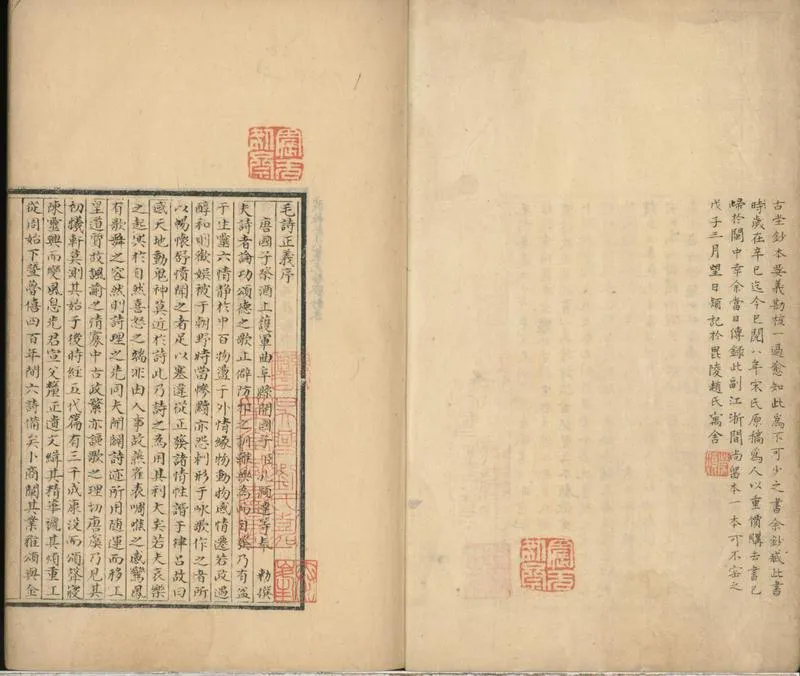 古堂鈔本要義勘校一過愈知此為不可少之書余鈔藏此書
時歲在辛巳迄今已閱八年宋氏原稿為人以重價購去書已
歸於閩中幸余當日傳錄此副江浙間尚留本一本可不寶之
戊子三月望日穎記於毘陵趙氏寓舍
毛詩正義序
唐國子祭酒上護軍曲阜縣開國子臣孔穎達等奉 勅撰
夫詩者論功頌德之歌止僻防邪之訓雖無為而自發乃有益
于生靈六情靜於中百物盪于外情緣物動物感情遷若政遇
醇和則歡娛被于朝野時當慘黷亦怨刺形于咏歌作之者所
以暢懷舒憤聞之者足以塞違從正發諸情性諧于律呂故曰
感天地動鬼神莫近於詩此乃詩之為用其利大矣若夫哀樂
之起冥於自然喜怒之端非由人事故燕雀表啁噍之感鸞鳳
有歌舞之容然則詩理之先同夫開闢詩迹所用隨運而移上
皇道質故諷諭之情寡中古政繁亦謳歌之理切唐虞乃見其
初犧軒莫測其始于後時經五代篇有三千成康沒而頌聲寢
陳靈興而變風息先君宣父釐正遺文緝其精華褫其煩重上
從周始下暨魯僖四百年間六詩備矣卜商闡其業雅頌與金